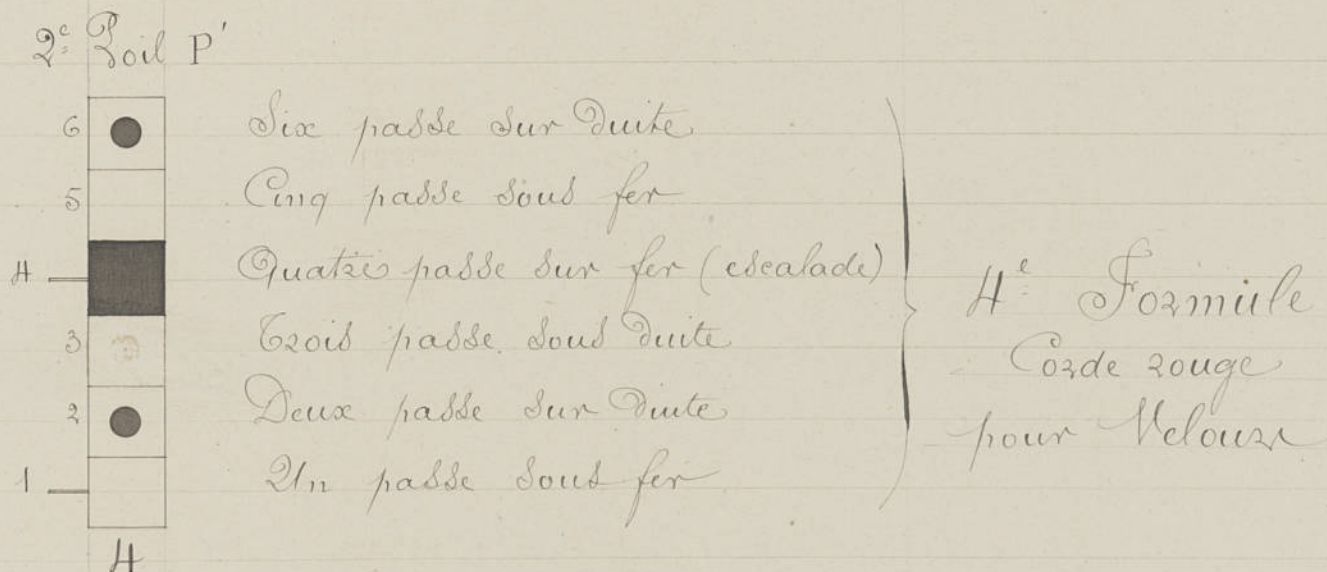 2e Poil P'
6 Six passe sur Duite
5 Cinq passe sous fer
4 Quatre passe sur fer (escalade)
3 Trois passe sous Duite
2 Deux passe sur Duite
1 Un passe sous fer
4
4e Formule
Corde rouge
pour Velours